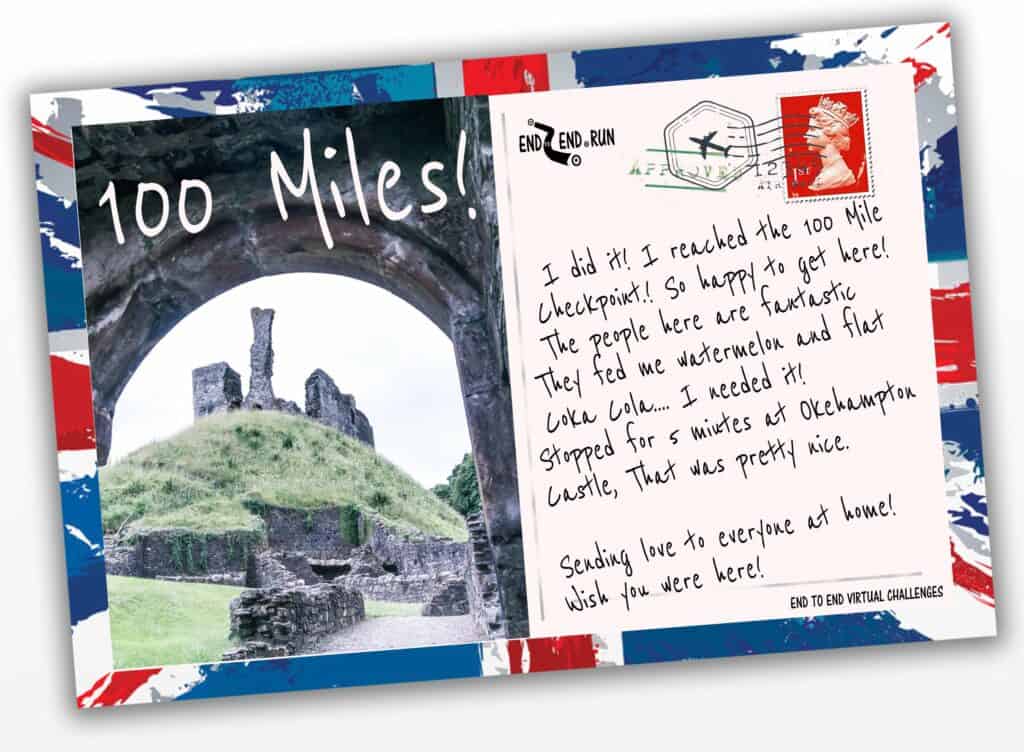 100 Miles!
END2END.RUN
APPROVED
1st
I did it! I reached the 100 Mile
checkpoint.! So happy to get here!
The people here are fantastic
They fed me watermelon and flat
Coka Cola.... I needed it!
Stopped for 5 miutes at Okehampton
Castle, That was pretty nice.
Sending love to everyone at home!
Wish you were here!
END TO END VIRTUAL CHALLENGES